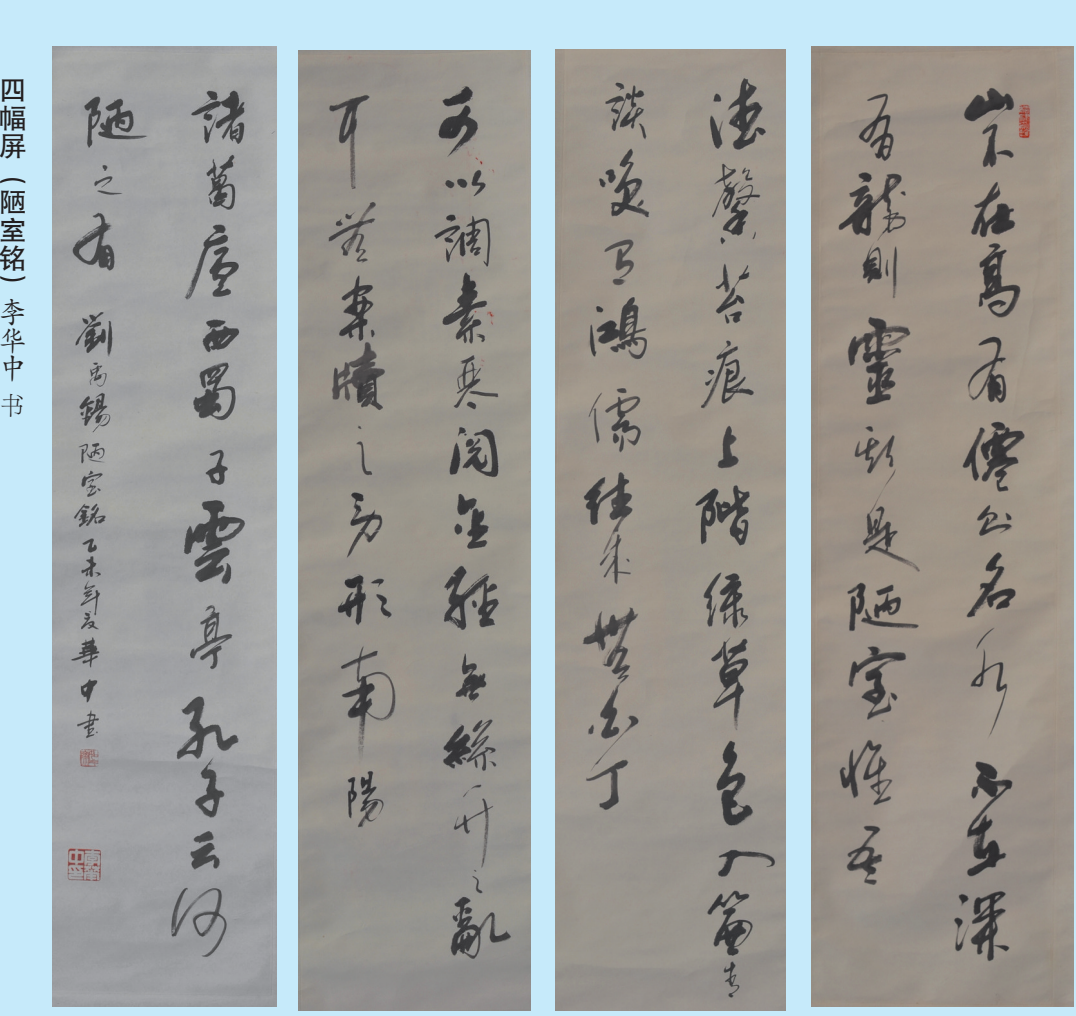 山不在高有僊則名水不在深
有龍則靈斯是陋室惟吾
德馨苔痕上階緑草色入簾青
談咲有鴻儒往來無白丁
可以調素琴閱金經無絲竹之亂
耳無案牘之勞形南陽
諸葛廬西蜀子雲亭孔子云何
陋之有 劉禹錫陋室銘乙未年夏華中書
四幅屏（陋室铭）李华中 书